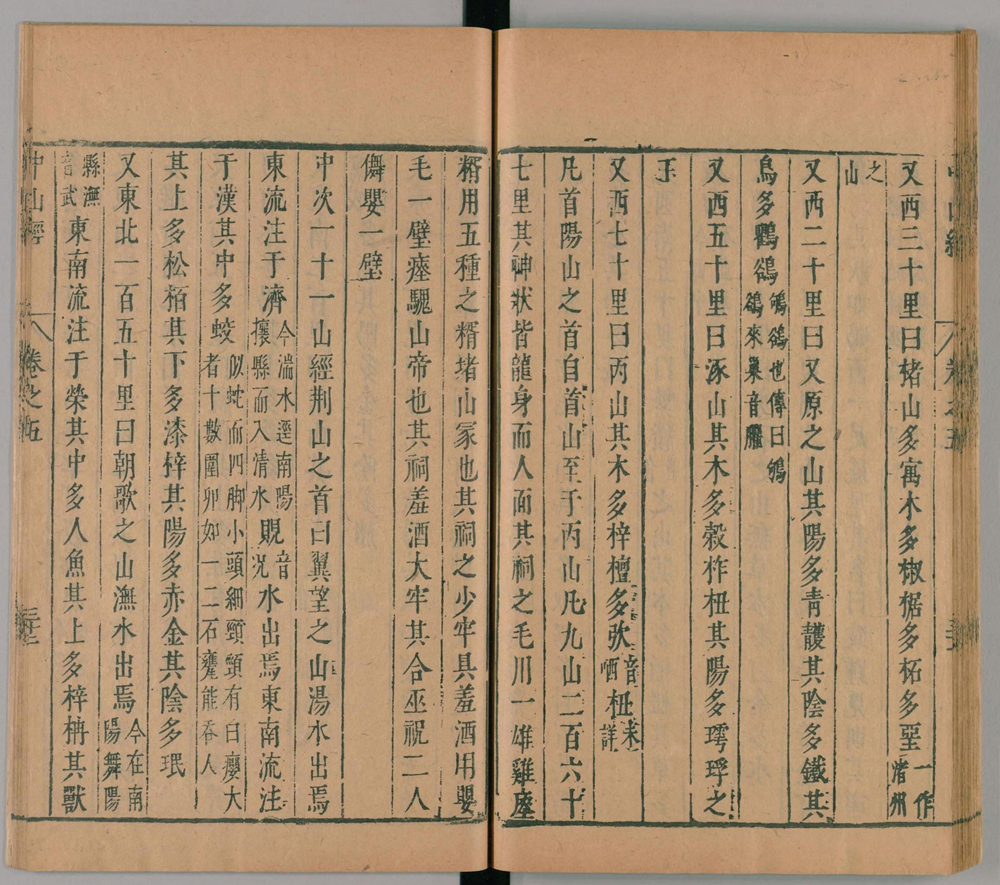 又西三十里曰楮山多寓木多椒椐多柘多堊一作渚州
之山
又西二十里曰又原之山其陽多青雘其陰多鐵其
鳥多鸜鵒鴝鵒也傳曰鴝鵒來巢音臞
又西五十里曰涿山其木多榖柞杻其陽多㻬琈之
玉
又西七十里曰丙山其木多梓檀多弞音哂杻未詳
凡首陽山之首自首山至于丙山凡九山二百六十
七里其神狀皆龍身而人面其祠之毛用一雄雞瘞
糈用五種之糈堵山冢也其祠之少牢具羞酒用嬰
毛一璧瘞騩山帝也其祠羞酒大牢其合巫祝二人
儛嬰一璧
中次一十一山經荆山之首曰翼望之山湯水出焉
東流注于濟今湍水逕南陽攘縣而入清水貺音况水出焉東南流注
于漢其中多蛟似蛇而四脚小頭細頸頸有白癭大者十數圍卵如一二石甕能吞人
其上多松栢其下多漆梓其陽多赤金其陰多珉
又東北一百五十里曰朝歌之山潕水出焉今在南陽舞陽
縣潕音武東南流注于滎其中多人魚其上多梓枏其獸
中山經 卷之五